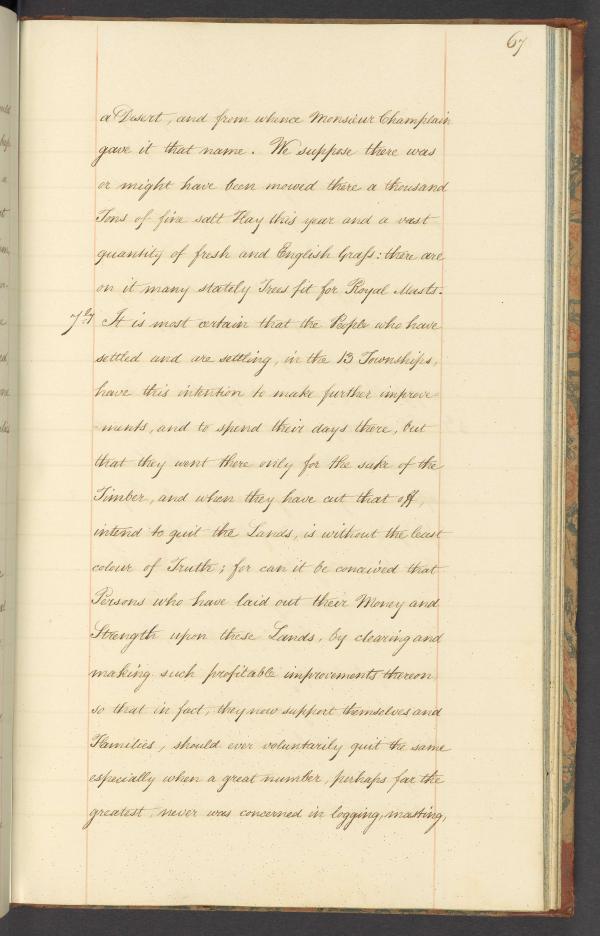 67
a Desert, and from whence Monsieur Champlain
gave it that name. We suppose there was
or might have been mowed there a thousand
Tons of fine salt Hay this year and a vast
quantity of fresh and English Grass: there are
on it many stately Trees fit for Royal Masts.
7ly It is most certain that the People who have
settled and are settling, in the 13 Townships,
have this intention to make further improve-
-ments, and to spend their days there, but
that they went there only for the sake of the
Timber, and when they have cut that off,
intend to quit the Lands, is without the least
colour of Truth; for can it be conceived that
Persons who have laid out their Money and
Strength upon these Lands, by clearing and
making such profitable improvements thereon
so that in fact, they now support themselves and
Families, should ever voluntarily quit the same
especially when a great number, perhaps far the
greatest, never was concerned in logging, masting,